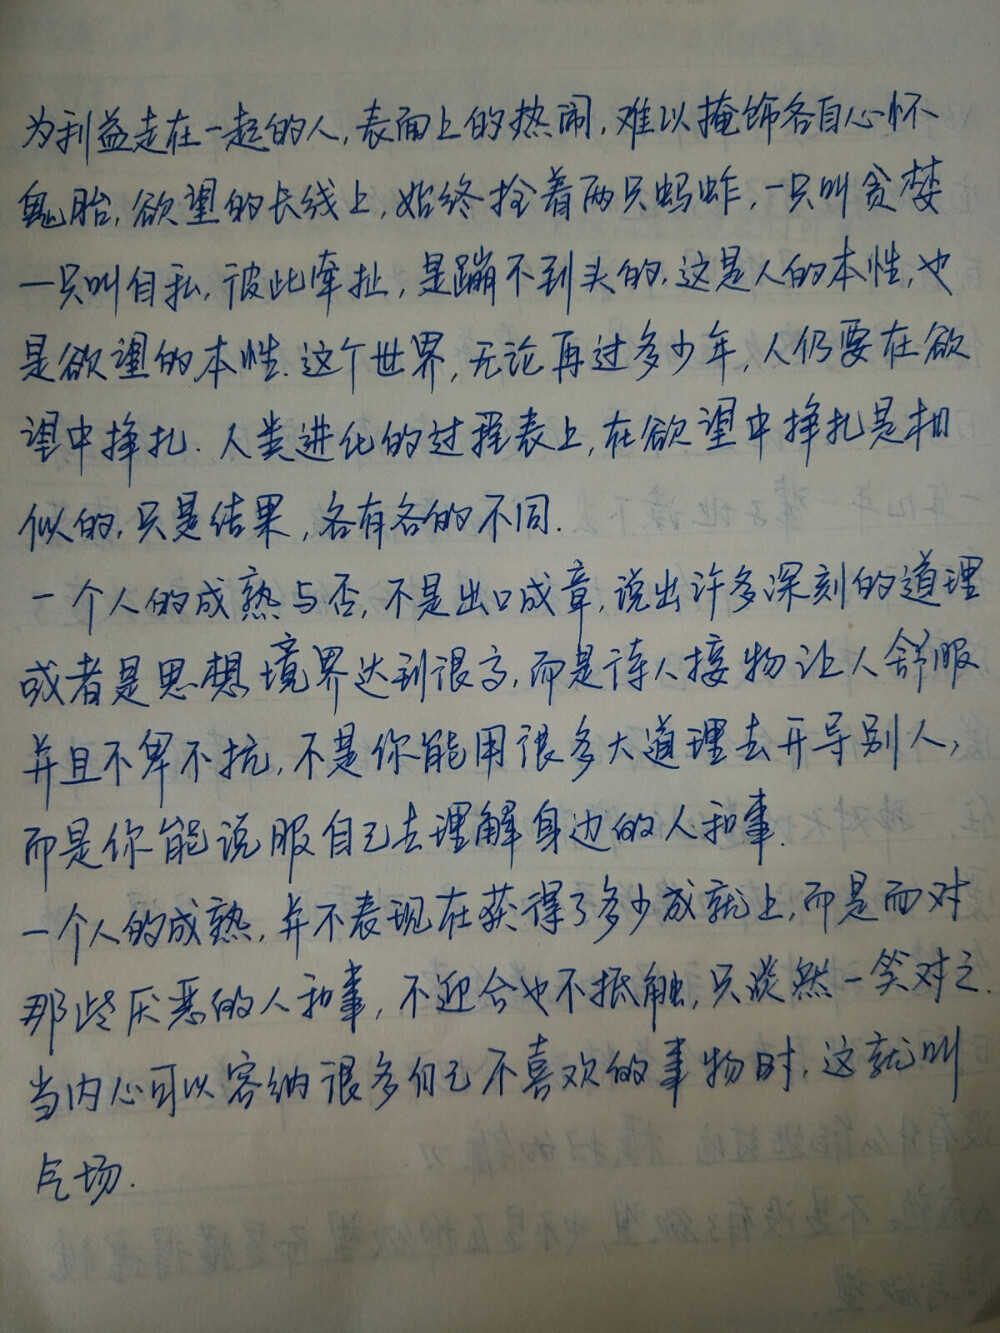 为利益走在一起的人,表面上的热闹,难以掩饰各自心怀
鬼胎,欲望的长线上,始终拴着两只蚂蚱,一只叫贪婪
一只叫自私,彼此牵扯,是蹦不到头的,这是人的本性,也
是欲望的本性.这个世界,无论再过多少年,人仍要在欲
望中挣扎.人类进化的过程表上,在欲望中挣扎是相
似的,只是结果,各有各的不同.
一个人的成熟与否,不是出口成章,说出许多深刻的道理
或者是思想境界达到很高,而是待人接物让人舒服
并且不卑不抗,不是你能用很多大道理去开导别人,
而是你能说服自己去理解身边的人和事.
一个人的成熟,并不表现在获得了多少成就上,而是面对
那些厌恶的人和事,不迎合也不抵触,只淡然一笑对之.
当内心可以容纳很多自己不喜欢的事物时,这就叫
气场.